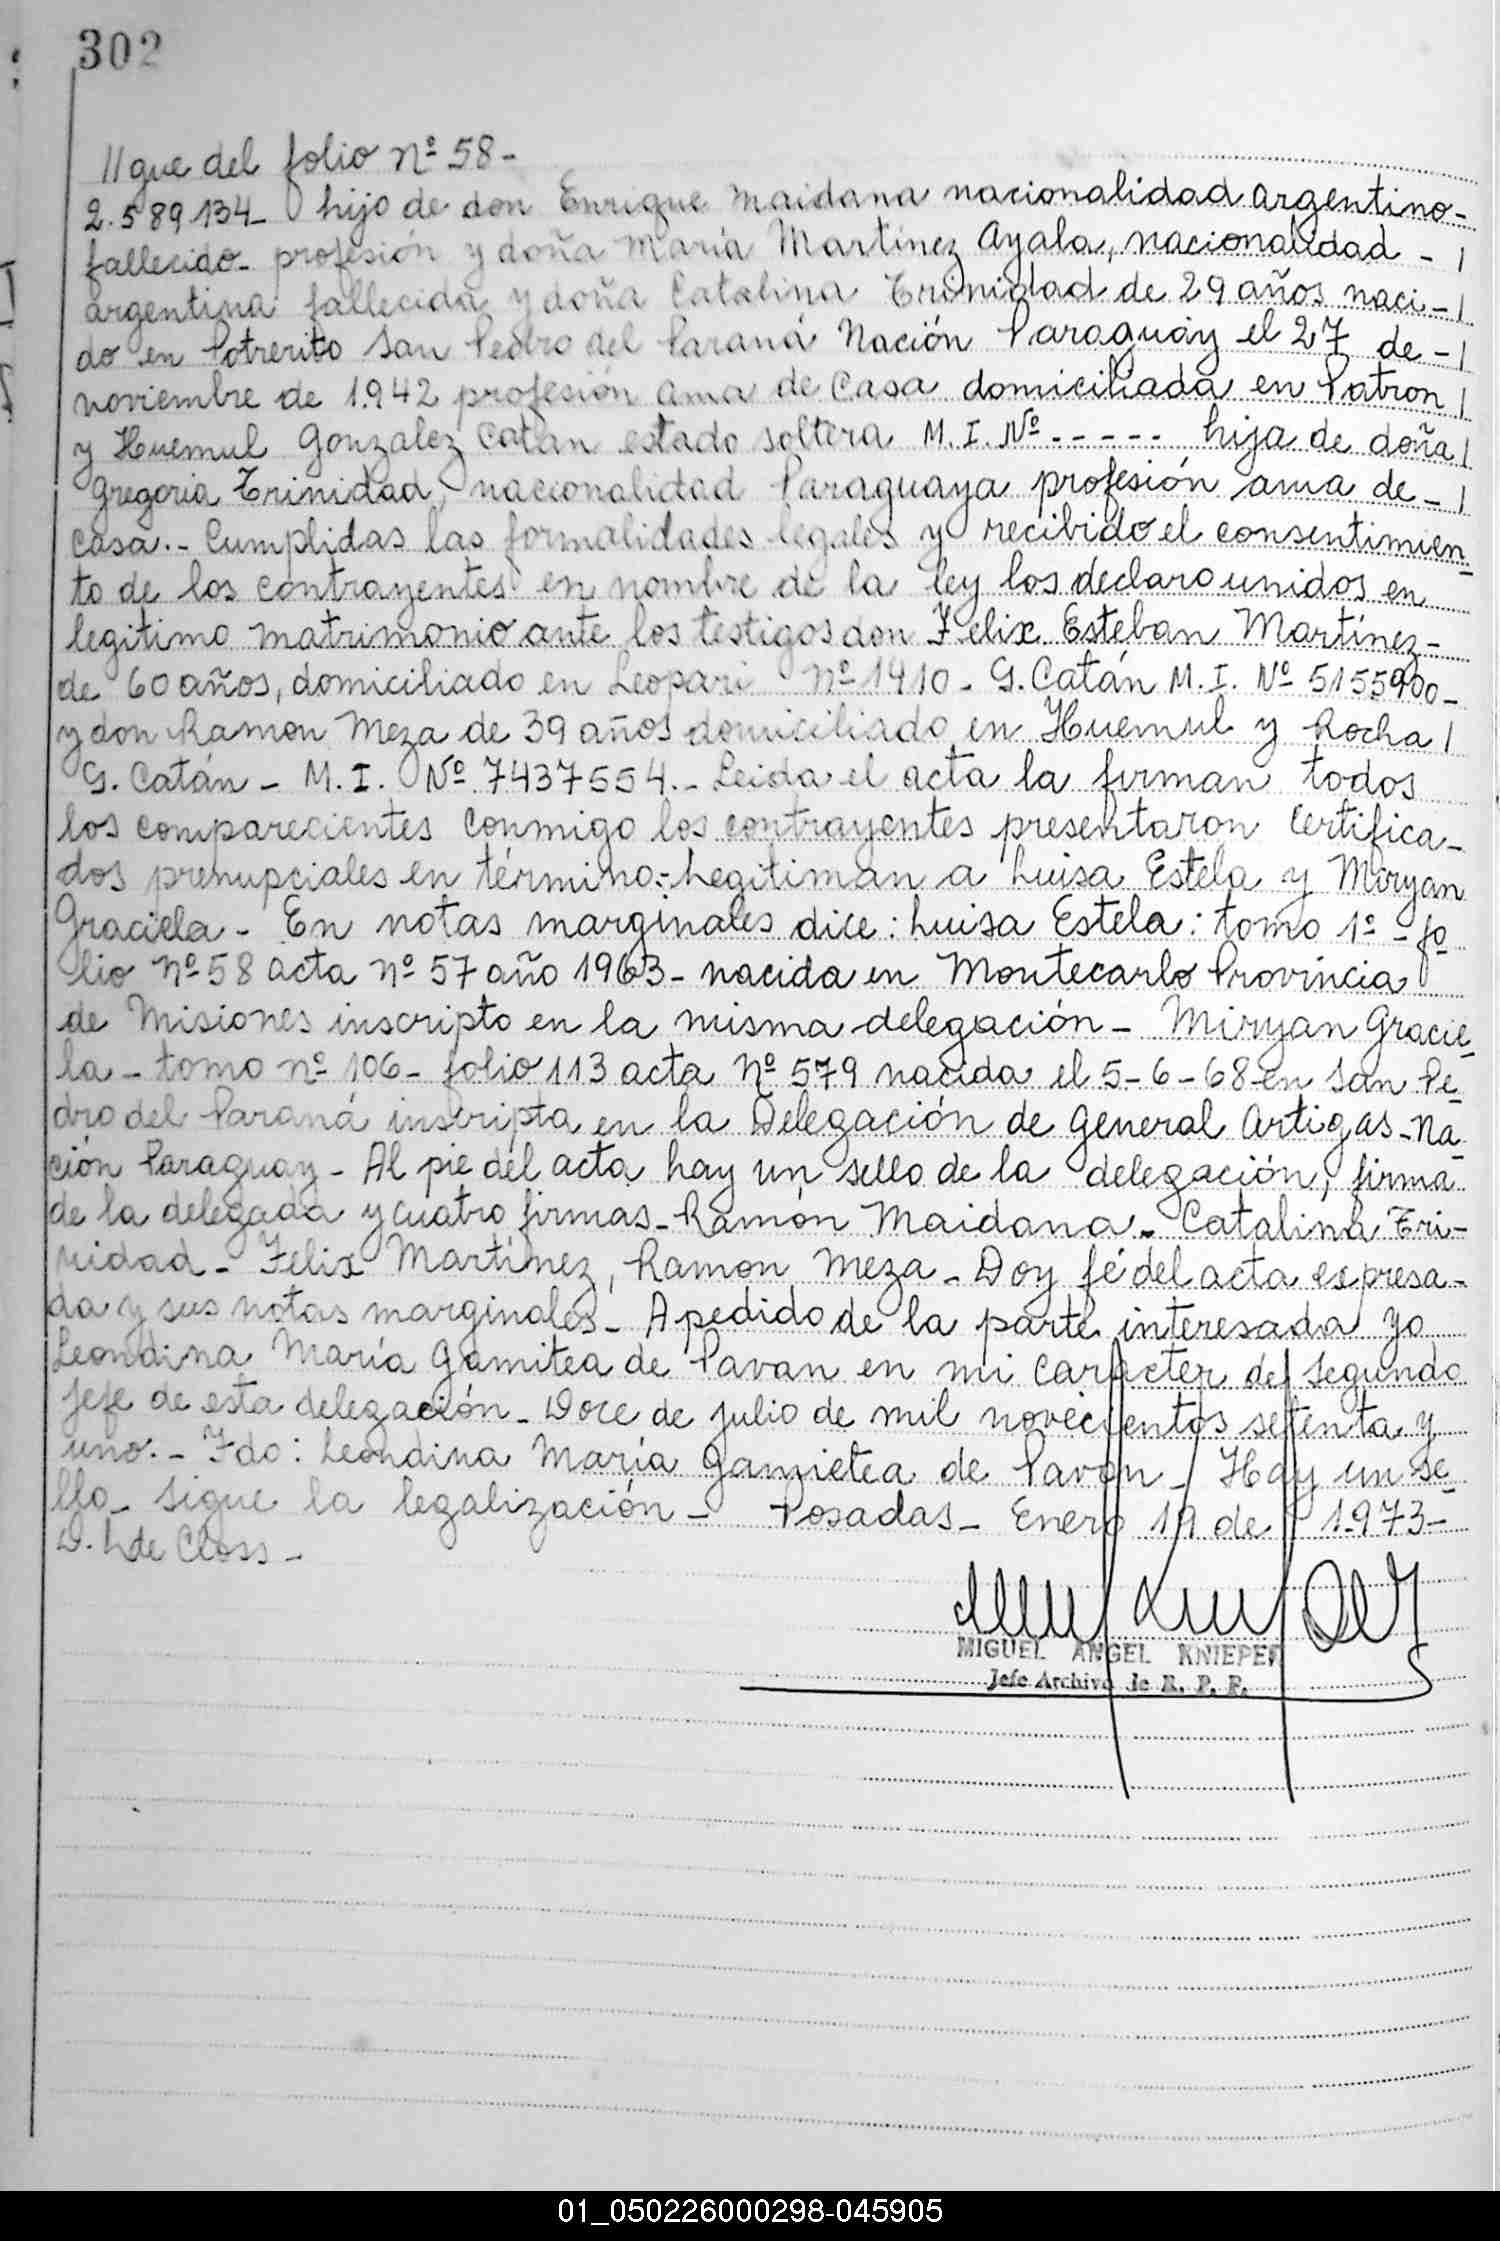 302
//gue del folio Nº 58-
2.589.134- hijo de don Enrique Maidana nacionalidad argentino-
fallecido- profesión y doña María Martínez Ayala, nacionalidad -
argentina fallecida y doña Catalina Trinidad de 29 años naci-
do en Potrerito San Pedro del Paraná Nación Paraguay el 27 de-
noviembre de 1.942 profesión ama de Casa domiciliada en Patron
y Huemul Gonzalez Catan estado soltera M.I. Nº ----- hija de doña
Gregoria Trinidad, nacionalidad Paraguaya profesión ama de-
casa.- Cumplidas las formalidades legales y recibido el consentimien
to de los contrayentes en nombre de la ley los declaro unidos en
legitimo matrimonio ante los testigos don Felix Esteban Martínez-
de 60 años, domiciliado en Leopari Nº 1410- G. Catán M.I. Nº 5155900-
y don Ramon Meza de 39 años domiciliado en Huemul y Rocha
G. Catán - M.I. Nº 7437554.- Leida el acta la firman todos
los comparecientes conmigo los contrayentes presentaron certifica-
dos prenupciales en término.- Legitiman a Luisa Estela y Miryan
Graciela - En notas marginales dice: Luisa Estela: tomo 1º - fo
lio Nº 58 acta Nº 57 año 1963- nacida en Montecarlo Provincia
de Misiones inscripto en la misma delegación - Miryan Gracie
la - tomo Nº 106- folio 113 acta Nº 579 nacida el 5-6-68 en San Pe
dro del Paraná inscripta en la Delegación de General Artigas - Na
ción Paraguay - Al pie del acta hay un sello de la delegación, firma
de la delegada y cuatro firmas - Ramón Maidana - Catalina Tri-
nidad - Felix Martínez, Ramon Meza - Doy fé del acta expresa-
da y sus notas marginales - A pedido de la parte interesada yo
Leondina María Gamitea de Pavan en mi caracter de segundo
jefe de esta delegación - Doce de julio de mil novecientos setenta y
uno.- Fdo: Leondina María Gamietea de Pavan - Hay un se
llo - Sigue la legalización - Posadas - Enero 19 de 1.973-
D. L de Closs -
MIGUEL ANGEL KNIEPER
Jefe Archivo de R. P. P.
01_050226000298-045905